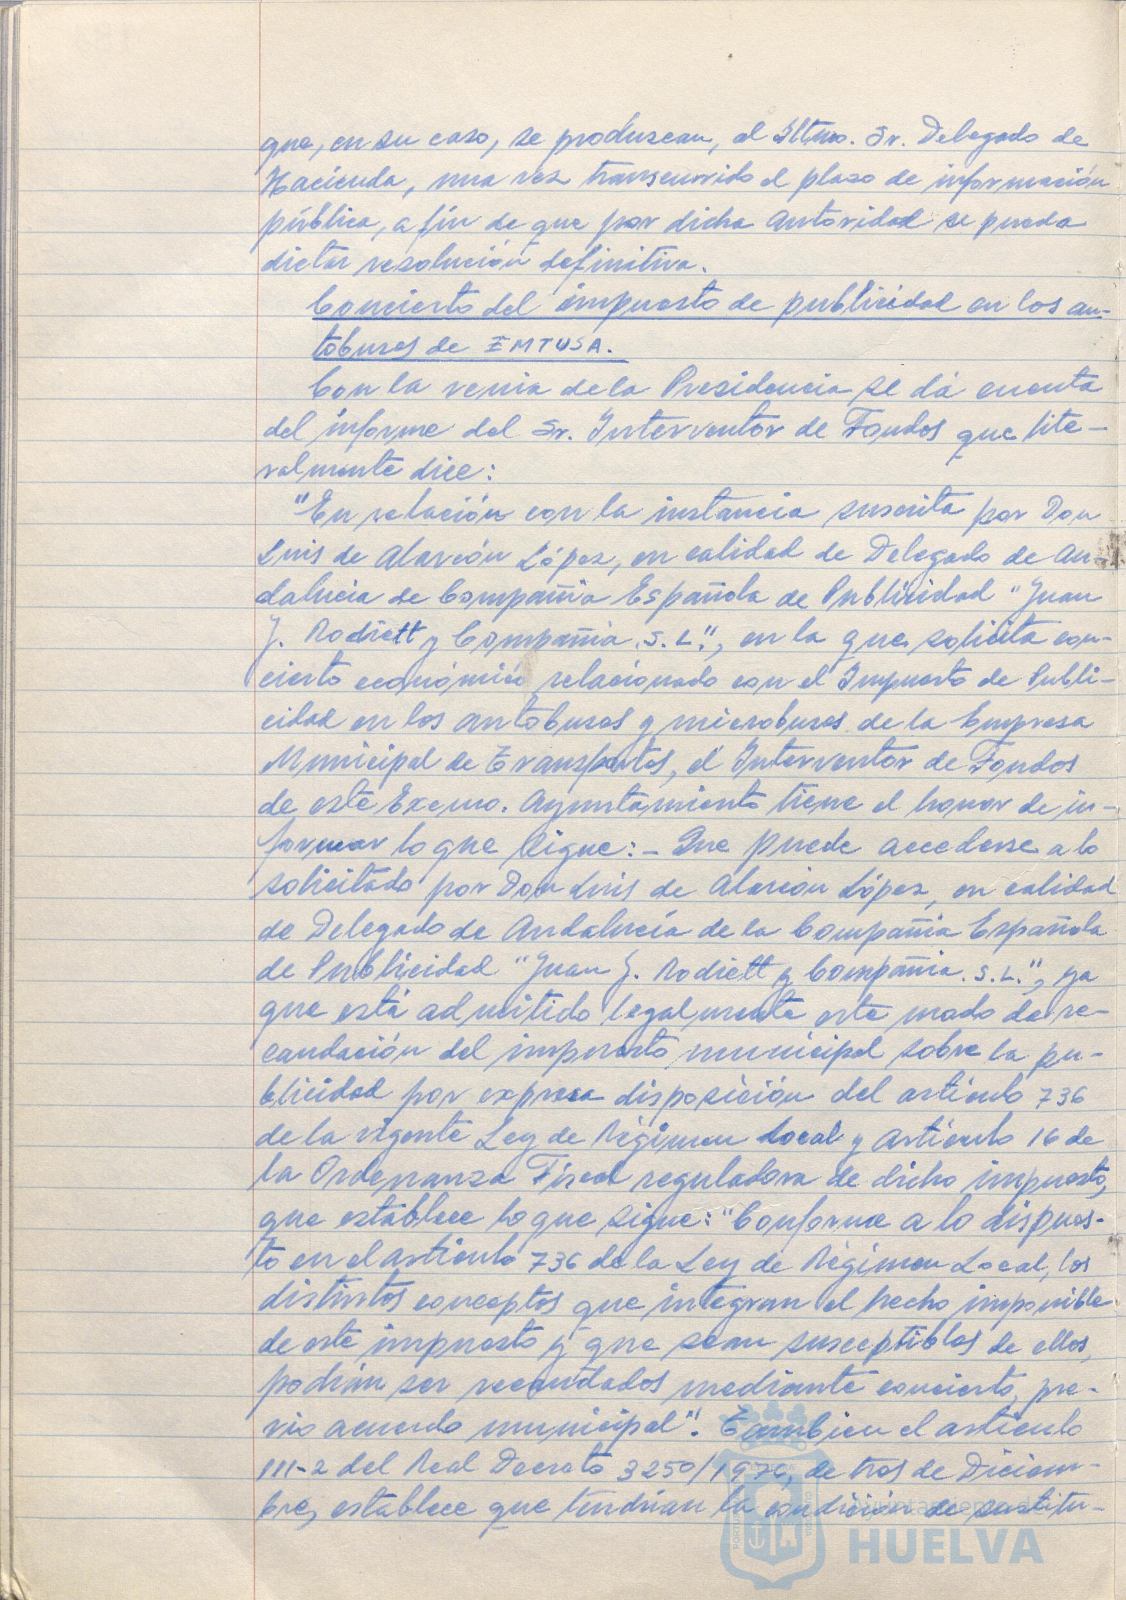 que, en su caso, se produzcan, al Iltmo. Sr. Delegado de
Hacienda, una vez transcurrido el plazo de información
pública, a fin de que por dicha autoridad se pueda
dictar resolución definitiva.
Concierto del impuesto de publicidad en los au-
tobuses de EMTUSA.
Con la venia de la Presidencia se dá cuenta
del informe del Sr. Interventor de Fondos que lite-
ralmente dice:
"En relación con la instancia suscrita por Don
Luis de Alarcón López, en calidad de Delegado de An-
dalucia de Compañia Española de Publicidad "Juan
J. Rodiett y Compañia. S. L.", en la que solicita con-
cierto económico relacionado con el Impuesto de Publi-
cidad en los autobuses y microbuses de la Empresa
Municipal de Transportes, el Interventor de Fondos
de este Excmo. Ayuntamiento tiene el honor de in-
formar lo que sigue:- Que puede accederse a lo
solicitado por Don Luis de Alarcón López, en calidad
de Delegado de Andalucía de la Compañia Española
de Publicidad "Juan J. Rodiett y Compañia. S. L.", ya
que está admitido legalmente este modo de re-
caudación del impuesto municipal sobre la pu-
blicidad por expresa disposición del artículo 736
de la vigente Ley de Régimen Local y artículo 16 de
la Ordenanza Fiscal reguladora de dicho impuesto,
que establece lo que sigue: "Conforme a lo dispues-
to en el artículo 736 de la Ley de Régimen Local, los
distintos conceptos que integran el hecho imponible
de este impuesto y que sean susceptibles de ellos,
podrán ser recaudados mediante concierto, pre-
vio acuerdo municipal". Tambien el artículo
111-2 del Real Decreto 3250/1976, de tres de Diciem-
bre, establece que tendrían la condición de sustitu-
Ayuntamiento de
HUELVA